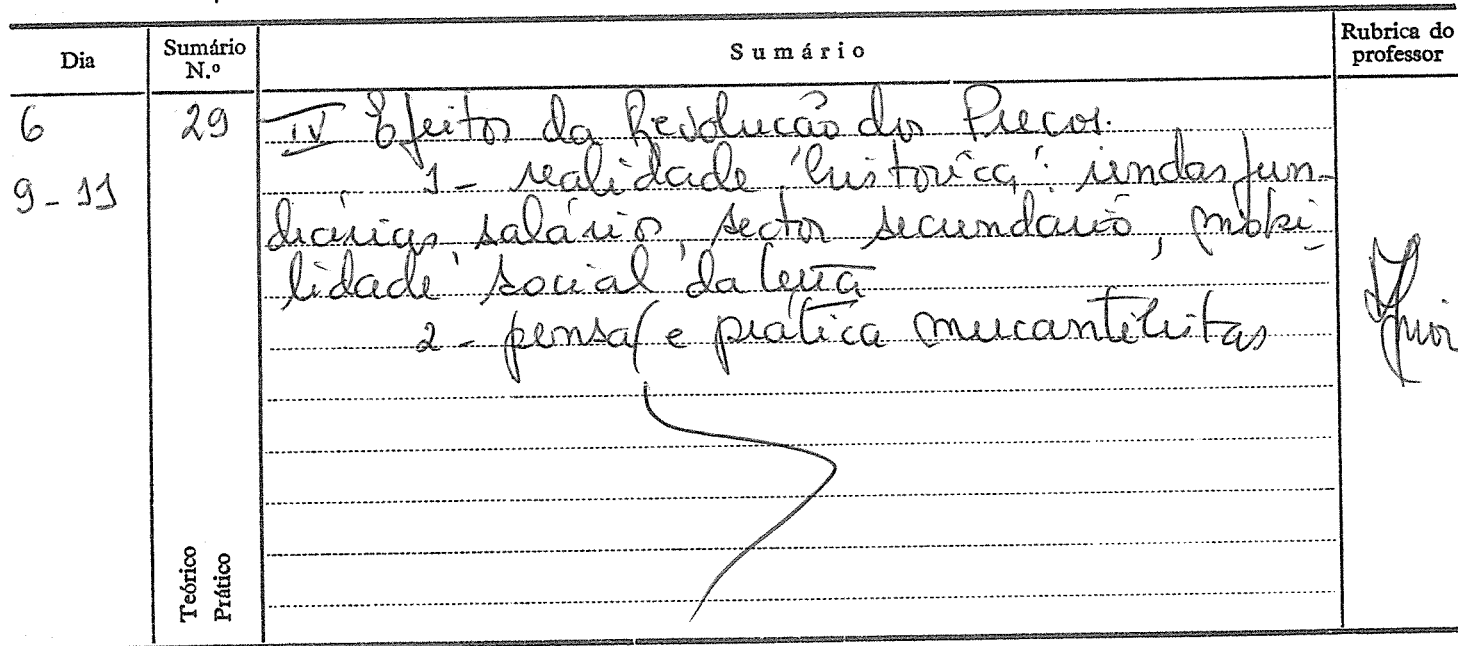 Dia
Sumário N.º
Sumário
Rubrica do professor
6
29
IV Efeitos da Revolução dos Preços.
9-11
1 - realidade histórica: rendas fun-
diárias, salários, sector secundário, mobi-
lidade social da terra
2 - pensa( e prática mercantilistas
Teórico
Prático